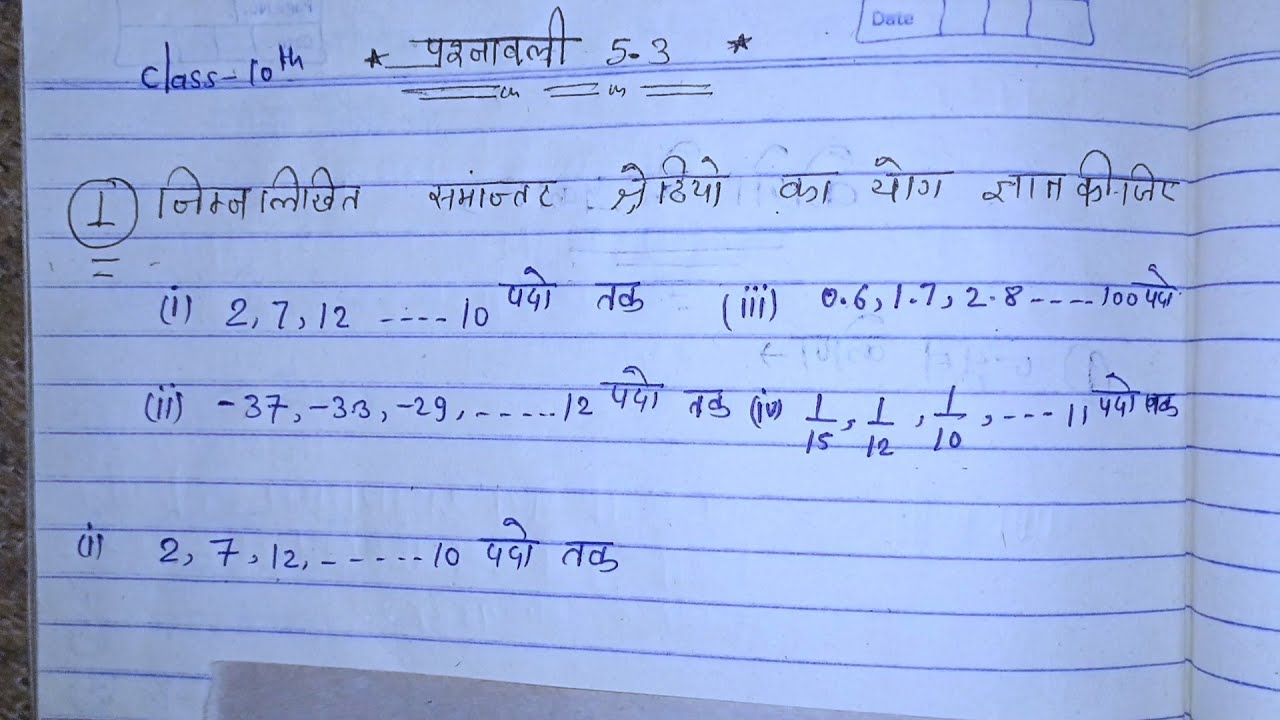 Date
Class-10th * प्रश्नावली 5.3 *
1 निम्नलिखित समांन्तर श्रेढियो का योग ज्ञात कीजिए
(i) 2, 7, 12 ..... 10 पदो तक (iii) 0.6, 1.7, 2.8 ..... 100 पदो
(ii) -37, -33, -29, ...... 12 पदो तक (iv) 1/15, 1/12, 1/10, .... 11 पदो तक
(i) 2, 7, 12, ...... 10 पदो तक